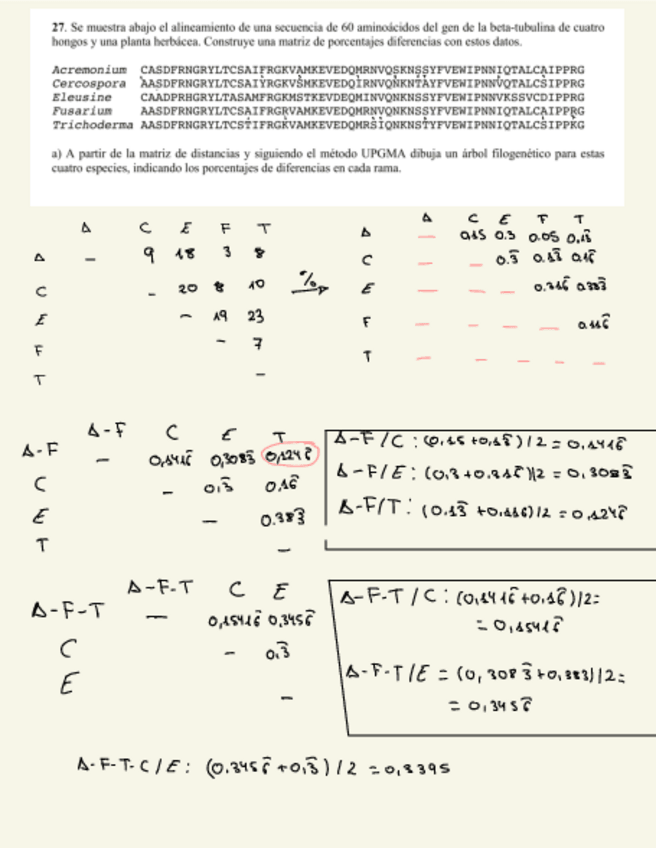 27. Se muestra abajo el alineamiento de una secuencia de 60 aminoácidos del gen de la beta-tubulina de cuatro
hongos y una planta herbácea. Construye una matriz de porcentajes diferencias con estos datos.
Acremonium CASDFRNGRYLTCSAIFRGKVAMKEVEDQMRNVQSKNSSYFVEWIPNNIQTALCAIPPRG
Cercospora AASDFRNGRYLTCSAIYRGKVSMKEVEDQIRNVQNKNTAYFVEWIPNNVQTALCSIPPRG
Eleusine CAADPRHGRYLTASAMFRGKMSTKEVDEQMINVQNKNSSYFVEWIPNNVKSSVCDIPPRG
Fusarium AASDFRNGRYLTCSAIFRGKVAMKEVEDQMRNVQNKNSSYFVEWIPNNIQTALCSIPPRG
Trichoderma AASDFRNGRYLTCSTIFRGKVAMKEVEDQMRSIQNKNSTYFVEWIPNNIQTALCSIPPKG
a) A partir de la matriz de distancias y siguiendo el método UPGMA dibuja un árbol filogenético para estas
cuatro especies, indicando los porcentajes de diferencias en cada rama.
A C E F T
A – 9 18 3 8
C – 20 8 10
E – 19 23
F – 7
T –
%
A C E F T
A — 0.15 0.3 0.05 0,13
C — — 0.3 0.13 0.16
E — — — 0.316 0.383
F — — — — 0.116
T — — — — —
A-F C E T
A-F — 0,1416 0,3083 0,1246
C – 0,3 0.16
E – 0.383
T –
A-F/C : (0,15 +0,13)/2 = 0,1416
A-F/E : (0,3+0.316)/2 = 0,3083
A-F/T : (0.13 +0,116)/2 = 0,1246
A-F-T C E
A-F-T — 0,15416 0,3456
C – 0,3
E –
A-F-T / C : (0,1416+0,16)/2=
= 0,15416
A-F-T/E = (0,3083+0,383)/2=
= 0,3456
A-F-T-C/E : (0.3456 +0,3)/2 =0,3395